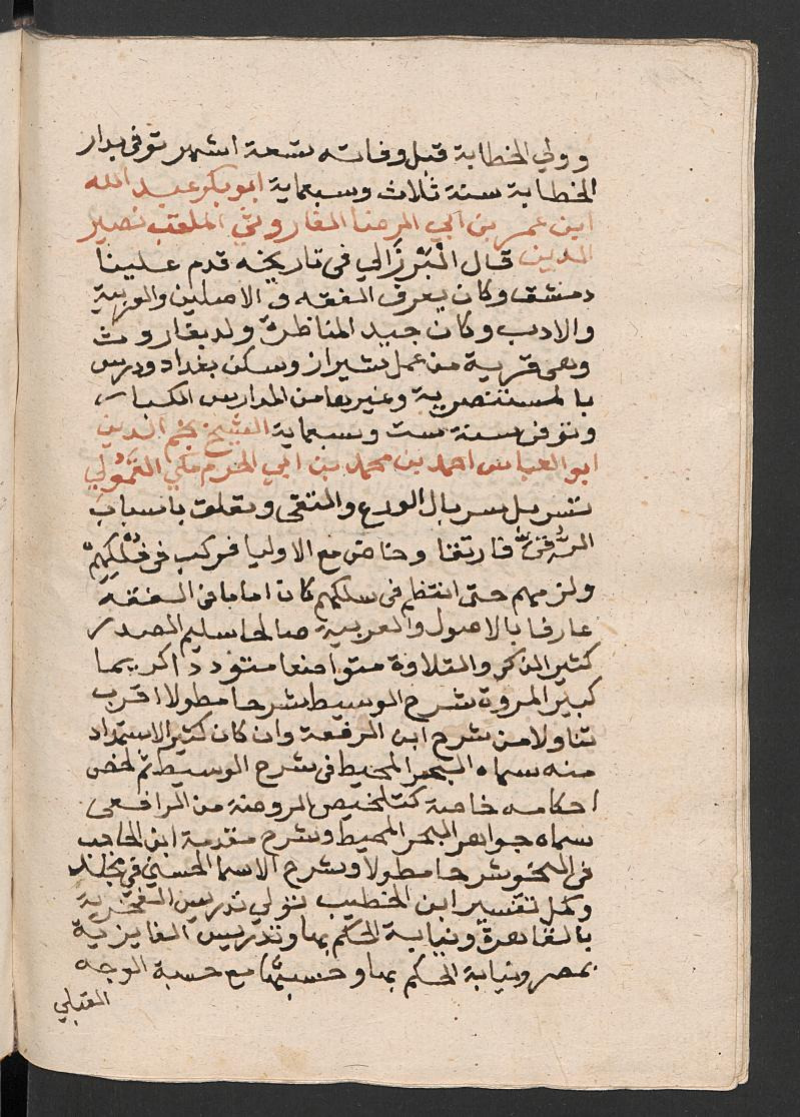 وولي الخطابة قبل وفاته بتسعة اشهر توفي بدار
الخطابة سنة ثلاث وسبعماية ابو بكر عبد الله
ابن عمر بن ابي الرضا الفاروثي الملقب نصير
الدين قال البَرْزَالي في تاريخه قدم علينا
دمشق وكان يعرف الفقه والاصلين والعربية
والادب وكان جيد المناظرة ولد بفاروث
وهى قرية من عمل شيراز وسكن بغداد ودرس
بالمستنصرية وغيرها من المدارس الكبار
وتوفى سنة ست وسبعماية الشيخ نجم الدين
ابو العباس احمد بن محمد بن ابي الحزم مكي القمُولي
تسربل سربال الورع والتقى وتعلق باسباب
الترقى فارتقا وخاض مع الاوليا فركب في فُلْكِهِم
ولزمهم حتى انتظم في سلكهم كان اماما في الفقه
عارفا بالاصول والعربية صالحا سليم الصدر
كثير الذكر والتلاوة متواضعا متوددا كريما
كبير المروة شرح الوسيط شرحا مطولا اقرب
تناولا من شرح ابن الرفعة وان كان كثير الاستمداد
منه سماه البحر المحيط في شرح الوسيط ثم لخص
احكامه خاصة كتلخيص الروضة من الرافعى
سماه جواهر البحر المحيط وشرح مقدمة ابن الحاجب
في النحو شرحا مطولا وشرح الاسما الحسنى في مجلد
وكمل تفسير ابن الخطيب تولي تدريس الفخرية
بالقاهرة ونيابة الحكم بها وتدريس الفايزية
بمصر ونيابة الحكم بها وحسبتها مع حسبة الوجه
القبلي